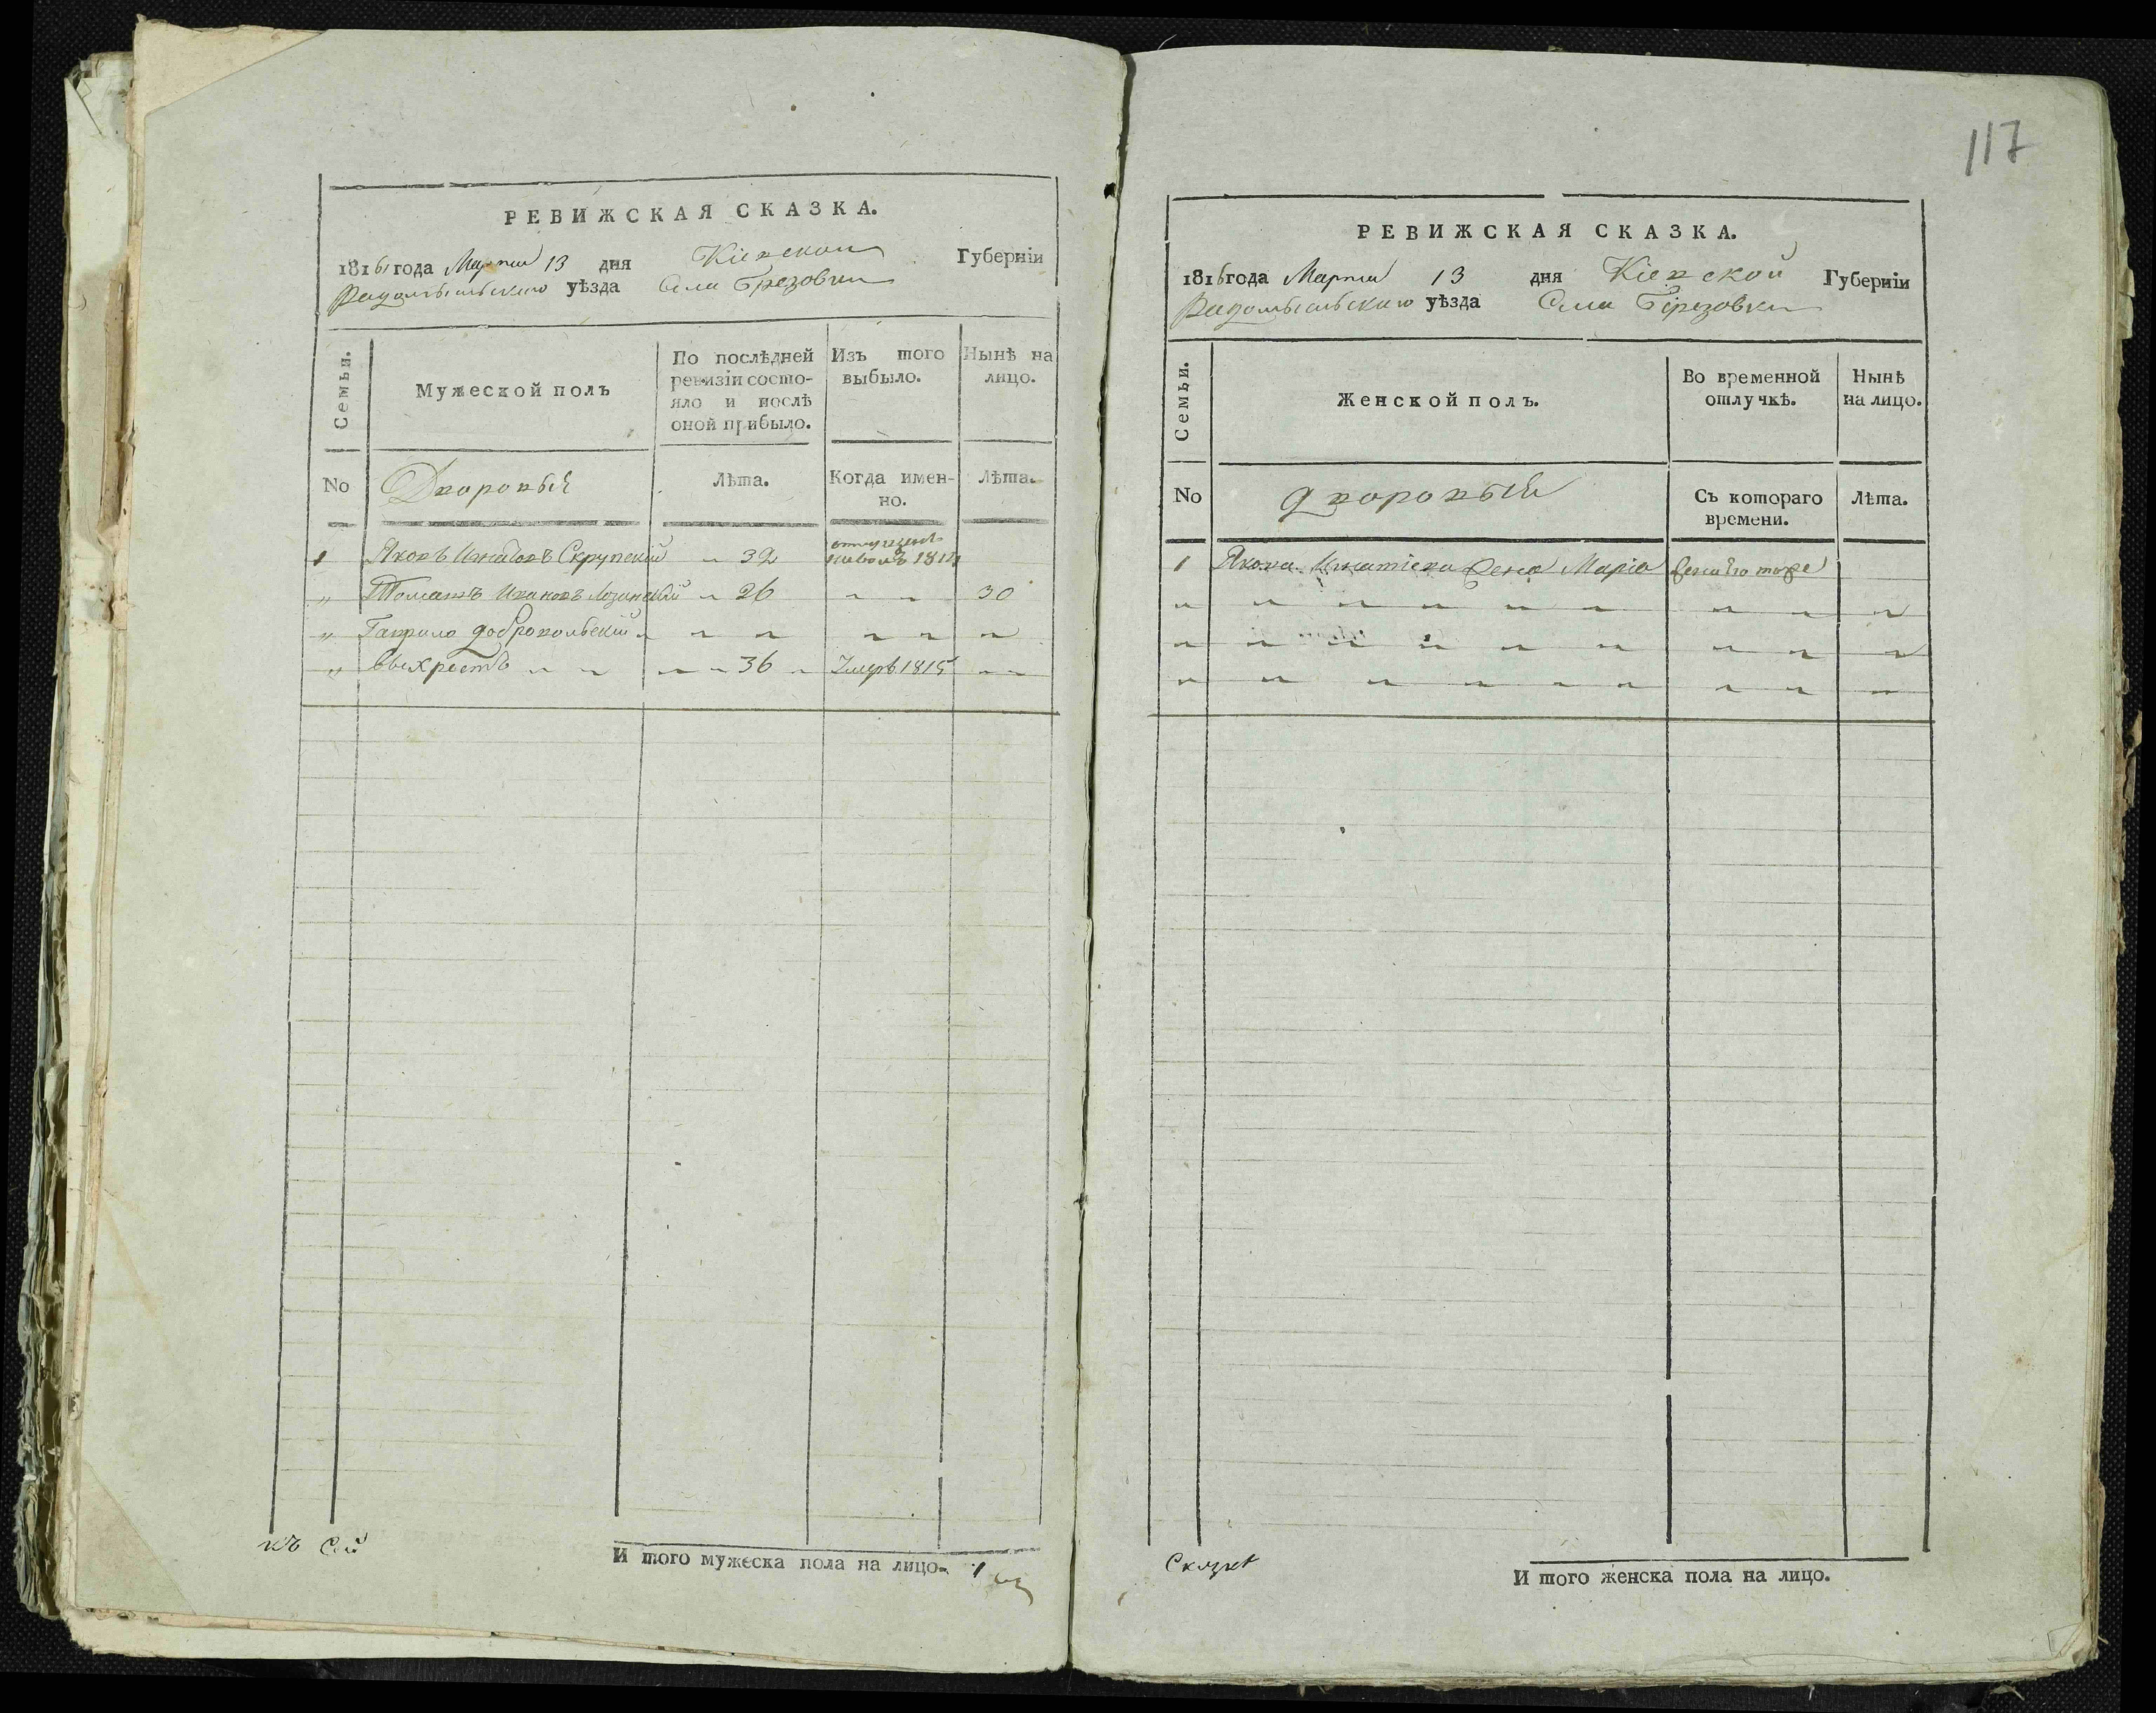 117
РЕВИЖСКАЯ СКАЗКА.
1816 года Марта 13 дня Кіевской Губерніи
Радомысльскаго уѣзда Села Брезовки
Семьи.
Мужеской полъ
По послѣдней ревизіи состо-
яло и послѣ
оной прибыло.
Изъ того
выбыло.
Нынѣ на
лицо.
No
Дворовый
Лѣта.
Когда имен-
но.
Лѣта.
1 Яковъ Скрупскій 32 1814
Томашъ Ивановъ Лозинскій 26 30
Гаврило Добровольскій
Выхрестъ 36 Умеръ 1815
къ сей
И того мужеска пола на лицо. 1
РЕВИЖСКАЯ СКАЗКА.
1816 года Марта 13 дня Кіевской Губерніи
Радомысльскаго уѣзда Села Березовки
Семьи.
Женской полъ.
Во временной
отлучкѣ.
Нынѣ
на лицо.
No
Дворовый
Съ котораго
времени.
Лѣта.
1 Якова Игнатіева жена Марія
Сказке
И того женска пола на лицо.